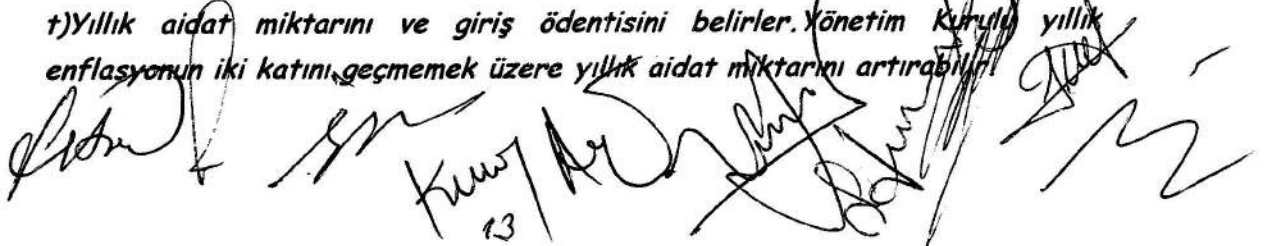 t)Yıllık aidat miktarını ve giriş ödentisini belirler.Yönetim Kurulu yıllık
enflasyonun iki katını geçmemek üzere yıllık aidat miktarını artırabilir.
13